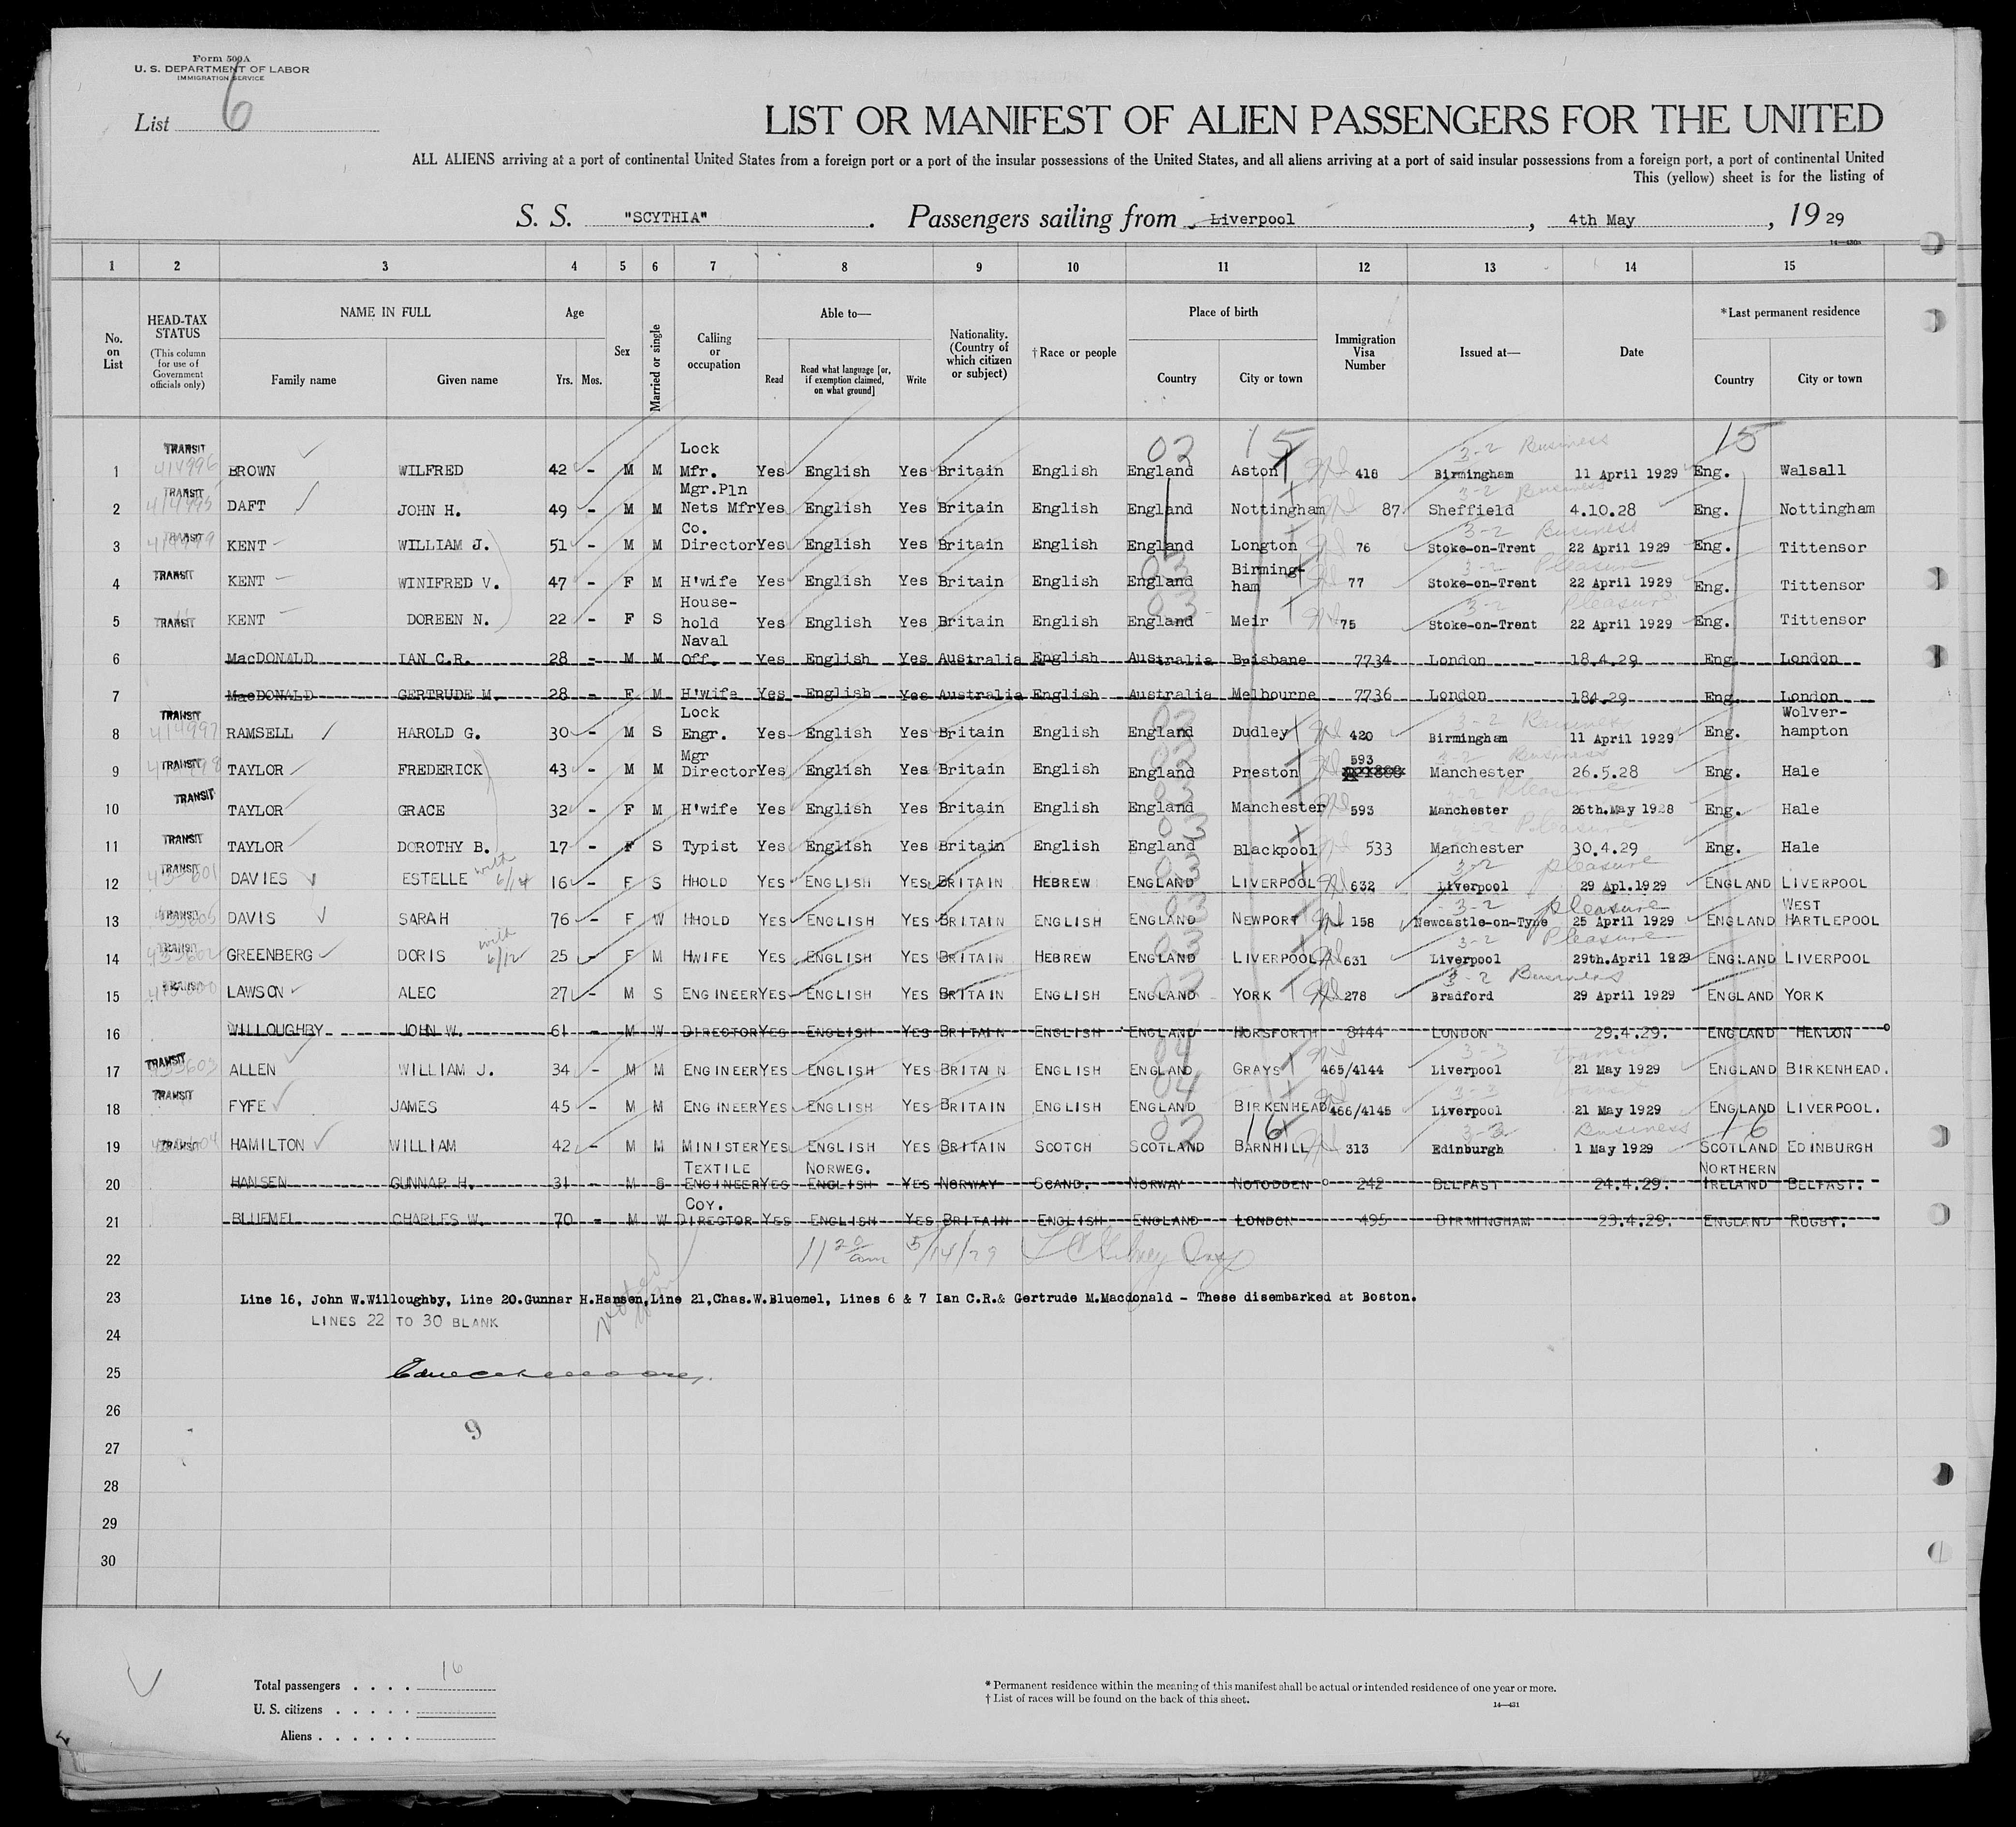 Form 500A
U. S. DEPARTMENT OF LABOR
IMMIGRATION SERVICE
List 6
LIST OR MANIFEST OF ALIEN PASSENGERS FOR THE UNITED
ALL ALIENS arriving at a port of continental United States from a foreign port or a port of the insular possessions of the United States, and all aliens arriving at a port of said insular possessions from a foreign port, a port of continental United
This (yellow) sheet is for the listing of
S. S. "SCYTHIA". Passengers sailing from Liverpool, 4th May, 19 29
1 2 3 4 5 6 7 8 9 10 11 12 13 14 15
No. on List
HEAD-TAX STATUS (This column for use of Government officials only)
NAME IN FULL Family name Given name
Age Yrs. Mos.
Sex
Married or single
Calling or occupation
Able to— Read Read what language [or, if exemption claimed, on what ground] Write
Nationality. (Country of which citizen or subject)
†Race or people
Place of birth Country City or town
Immigration Visa Number
Issued at—
Date
*Last permanent residence Country City or town
02 15 3-2 Business 15
1 TRANSIT BROWN WILFRED 42 - M M Lock Mfr. Yes English Yes Britain English England Aston 418 Birmingham 11 April 1929 Eng. Walsall
3-2 Business
2 TRANSIT DAFT JOHN H. 49 - M M Mgr.Pln Nets Mfr Yes English Yes Britain English England Nottingham 87 Sheffield 4.10.28 Eng. Nottingham
3-2 Business
3 TRANSIT KENT WILLIAM J. 51 - M M Co. Director Yes English Yes Britain English England Longton 76 Stoke-on-Trent 22 April 1929 Eng. Tittensor
3-2 Pleasure
4 TRANSIT KENT WINIFRED V. 47 - F M H'wife Yes English Yes Britain English England Birming- ham 77 Stoke-on-Trent 22 April 1929 Eng. Tittensor
3-2 Pleasure
5 TRANSIT KENT DOREEN N. 22 - F S House- hold Yes English Yes Britain English England Meir 75 Stoke-on-Trent 22 April 1929 Eng. Tittensor
6 MacDONALD IAN C.R. 28 - M M Naval Off. Yes English Yes Australia English Australia Brisbane 7734 London 18.4.29 Eng. London
7 MacDONALD GERTRUDE M. 28 - F M H'wife Yes English Yes Australia English Australia Melbourne 7736 London 184.29 Eng. London
3-2 Business
8 TRANSIT RAMSELL HAROLD G. 30 - M S Lock Engr. Yes English Yes Britain English England Dudley 420 Birmingham 11 April 1929 Eng. Wolver- hampton
3-2 Business
9 TRANSIT TAYLOR FREDERICK 43 - M M Mgr Director Yes English Yes Britain English England Preston 593 Manchester 26.5.28 Eng. Hale
3-2 Pleasure
10 TRANSIT TAYLOR GRACE 32 - F M H'wife Yes English Yes Britain English England Manchester 593 Manchester 26th.May 1928 Eng. Hale
3-2 Pleasure
11 TRANSIT TAYLOR DOROTHY B. 17 - F S Typist Yes English Yes Britain English England Blackpool 533 Manchester 30.4.29 Eng. Hale
3-2 Pleasure
12 TRANSIT DAVIES ESTELLE with 6/14 16 - F S HHOLD YES ENGLISH YES BRITAIN HEBREW ENGLAND LIVERPOOL 632 Liverpool 29 Apl.1929 ENGLAND LIVERPOOL
3-2 Pleasure
13 TRANSIT DAVIS SARAH 76 - F W HHOLD YES ENGLISH YES BRITAIN ENGLISH ENGLAND NEWPORT 158 Newcastle-on-Tyne 25 April 1929 ENGLAND WEST HARTLEPOOL
3-2 Pleasure
14 TRANSIT GREENBERG DORIS with 6/12 25 - F M HWIFE YES ENGLISH YES BRITAIN HEBREW ENGLAND LIVERPOOL 631 Liverpool 29th.April 1929 ENGLAND LIVERPOOL
3-2 Business
15 TRANSIT LAWSON ALEC 27 - M S ENGINEER YES ENGLISH YES BRITAIN ENGLISH ENGLAND YORK 278 Bradford 29 April 1929 ENGLAND YORK
16 WILLOUGHBY JOHN W. 61 - M W DIRECTOR YES ENGLISH YES BRITAIN ENGLISH ENGLAND HORSFORTH 8444 LONDON 29.4.29. ENGLAND HENDON
3-3 transit
17 TRANSIT ALLEN WILLIAM J. 34 - M M ENGINEER YES ENGLISH YES BRITAIN ENGLISH ENGLAND GRAYS 465/4144 Liverpool 21 May 1929 ENGLAND BIRKENHEAD.
3-3 transit
18 TRANSIT FYFE JAMES 45 - M M ENGINEER YES ENGLISH YES BRITAIN ENGLISH ENGLAND BIRKENHEAD 466/4145 Liverpool 21 May 1929 ENGLAND LIVERPOOL.
02 16 3-2 Business 16
19 TRANSIT HAMILTON WILLIAM 42 - M M MINISTER YES ENGLISH YES BRITAIN SCOTCH SCOTLAND BARNHILL 313 Edinburgh 1 May 1929 SCOTLAND EDINBURGH
20 HANSEN GUNNAR H. 31 - M S TEXTILE ENGINEER YES NORWEG. ENGLISH YES NORWAY SCAND. NORWAY NOTODDEN 242 BELFAST 24.4.29. NORTHERN IRELAND BELFAST.
21 BLUEMEL CHARLES W. 70 - M W COY. DIRECTOR YES ENGLISH YES BRITAIN ENGLISH ENGLAND LONDON 495 BIRMINGHAM 23.4.29. ENGLAND RUGBY.
22 11 20 am 5/14/29
23 Line 16, John W.Willoughby, Line 20.Gunnar H.Hansen,Line 21,Chas.W.Bluemel, Lines 6 & 7 Ian C.R.& Gertrude M.Macdonald - These disembarked at Boston.
LINES 22 TO 30 BLANK
24
25
26
9
27
28
29
30
Total passengers . . . . 16
U. S. citizens . . . . .
Aliens . . . . . .
* Permanent residence within the meaning of this manifest shall be actual or intended residence of one year or more.
† List of races will be found on the back of this sheet.
14—431